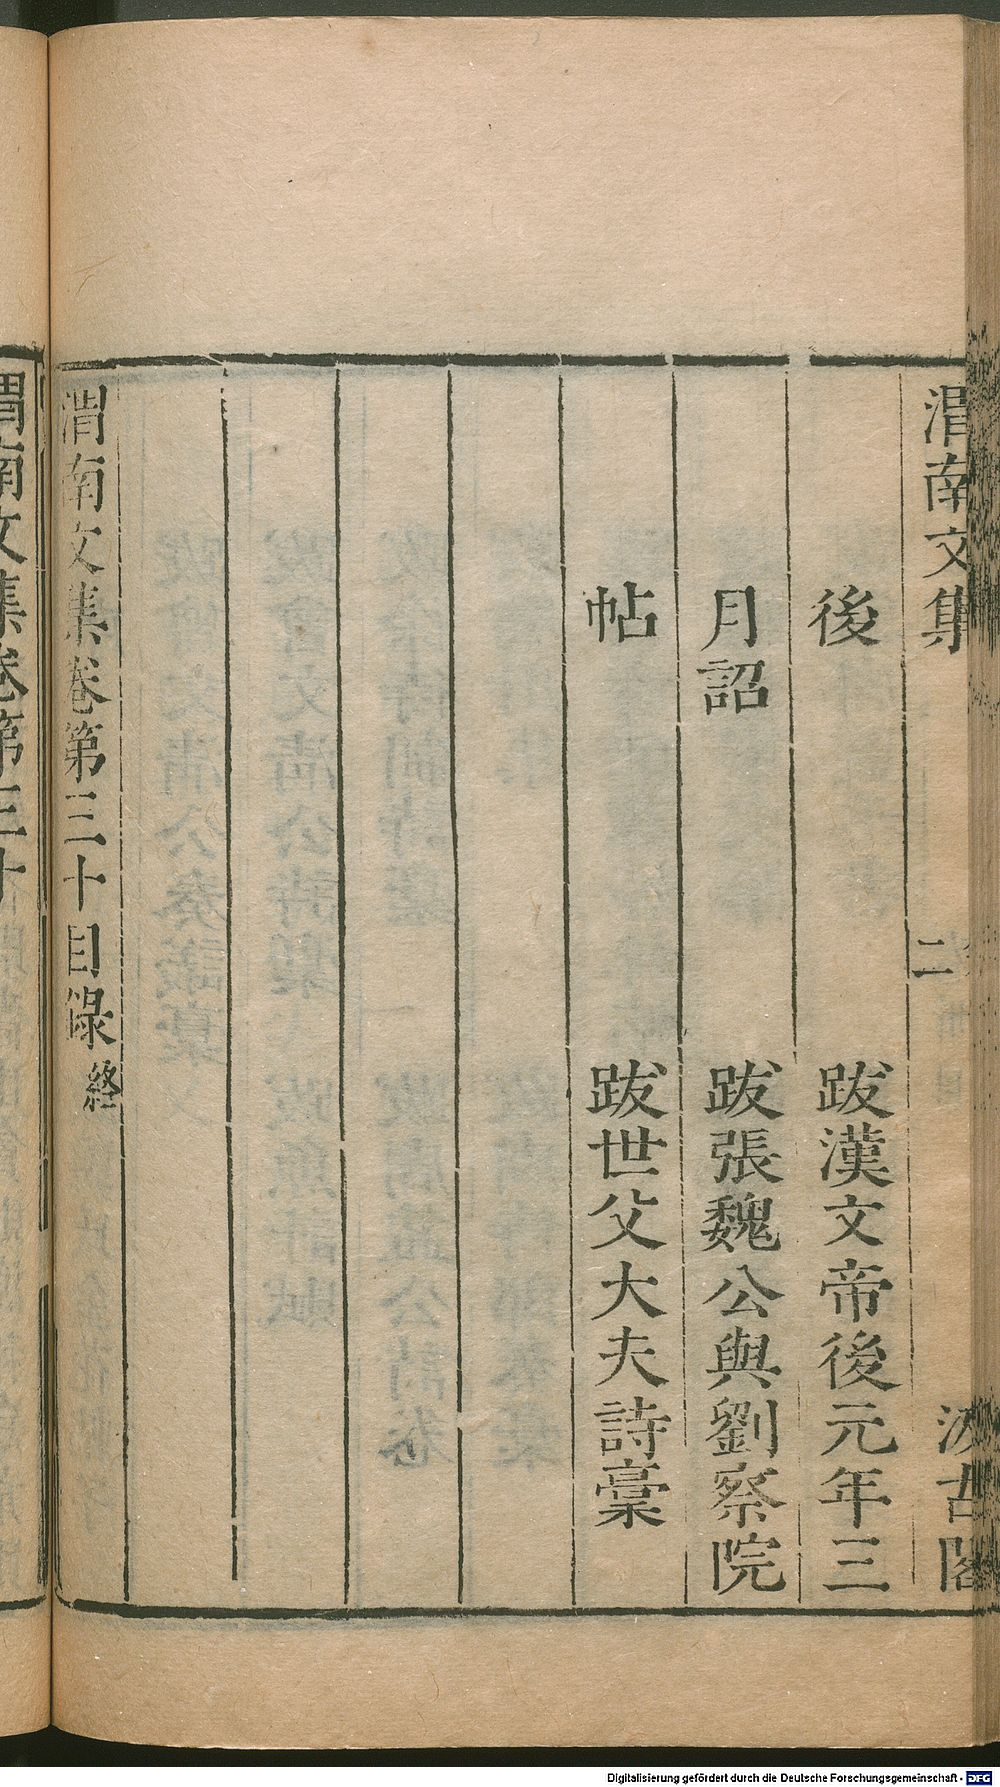 渭南文集 二 汲古閣
後 跋漢文帝後元年三
月詔 跋張魏公與劉察院
帖 跋世父大夫詩稾
渭南文集卷第三十目錄 終
渭南文集卷第三十
Digitalisierung gefördert durch die Deutsche Forschungsgemeinschaft - DFG